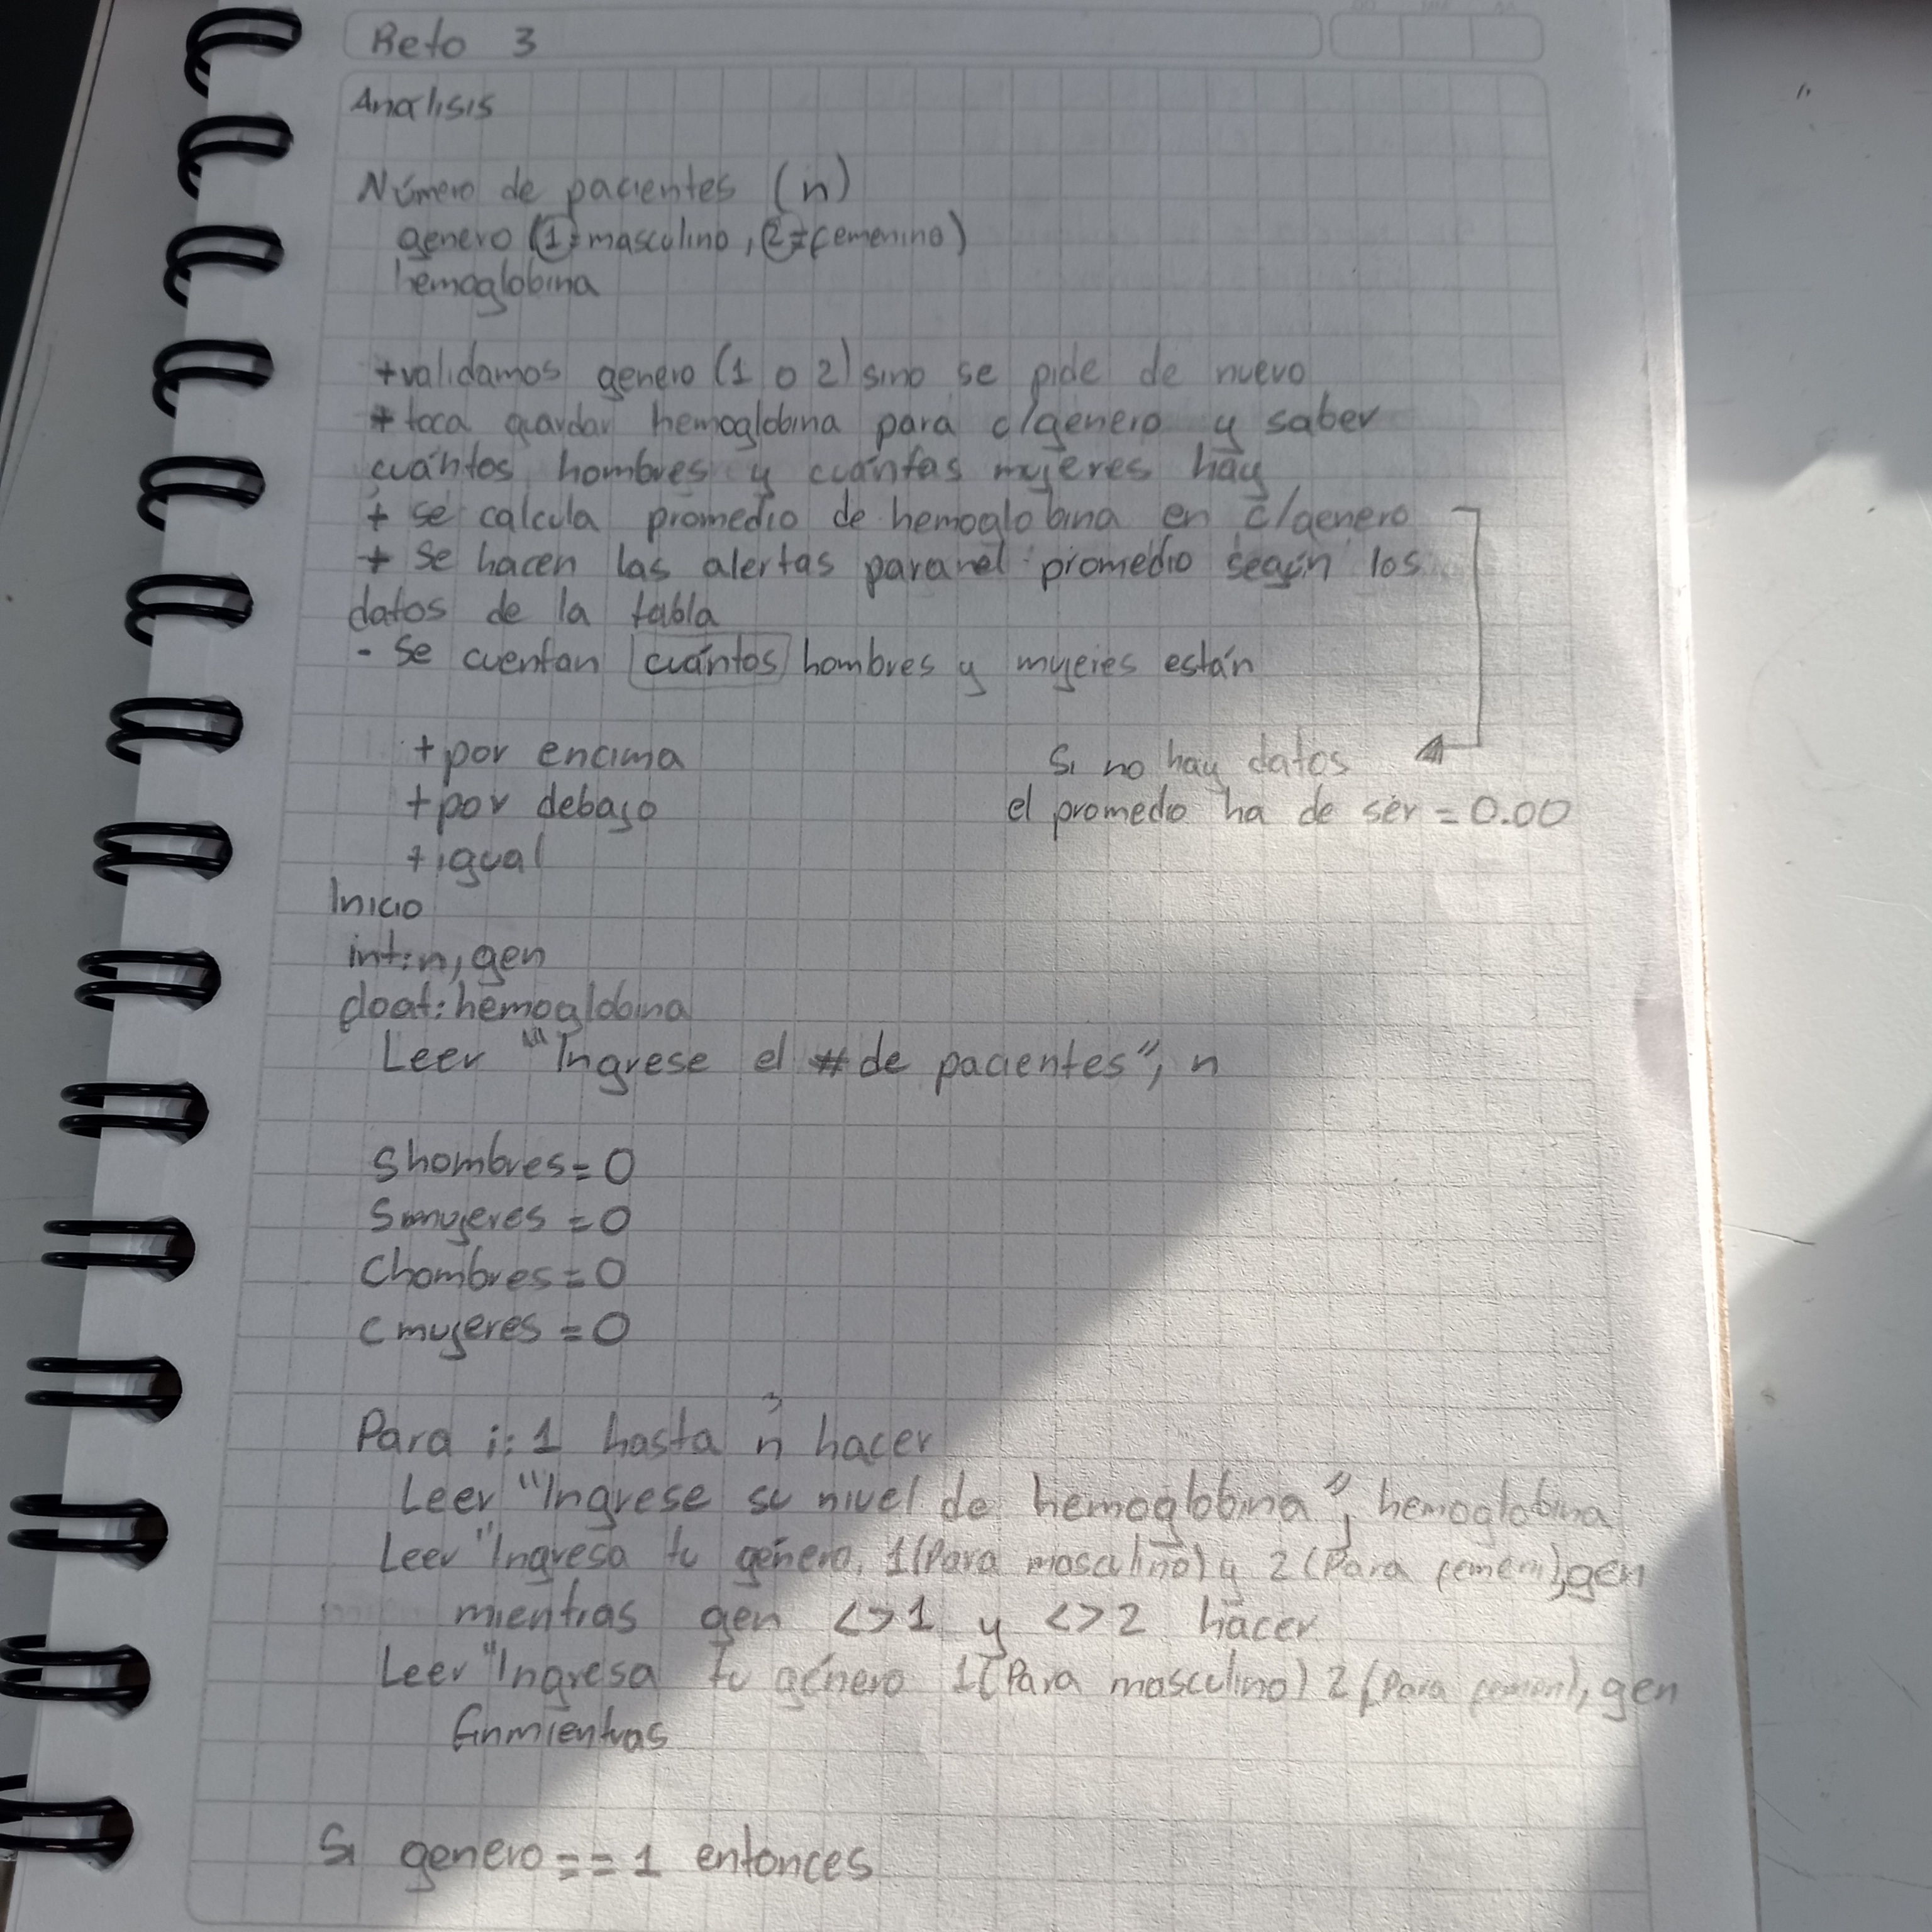 Reto 3
Analisis
Número de pacientes (n)
genero (1=masculino, 2=femenino)
hemoglobina
+validamos genero (1 o 2) sino se pide de nuevo
+ toca guardar hemoglobina para c/genero y saber
cuántos hombres y cuántas mujeres hay
+ se calcula promedio de hemoglobina en c/genero
+ Se hacen las alertas para el promedio según los
datos de la tabla
- Se cuentan cuántos hombres y mujeres están
+ por encima
+ por debajo
+ igual
Si no hay datos
el promedio ha de ser = 0.00
Inicio
int: n, gen
float: hemoglobina
Leer "Ingrese el # de pacientes", n
Shombres = 0
Smujeres = 0
Chombres = 0
Cmujeres = 0
Para i: 1 hasta n hacer
Leer "Ingrese su nivel de hemoglobina", hemoglobina
Leer "Ingresa tu género, 1(Para masculino) y 2 (Para femeni), gen
mientras gen <>1 y <>2 hacer
Leer "Ingresa tu género 1(Para masculino) 2 (Para femen), gen
finmientras
Si genero == 1 entonces